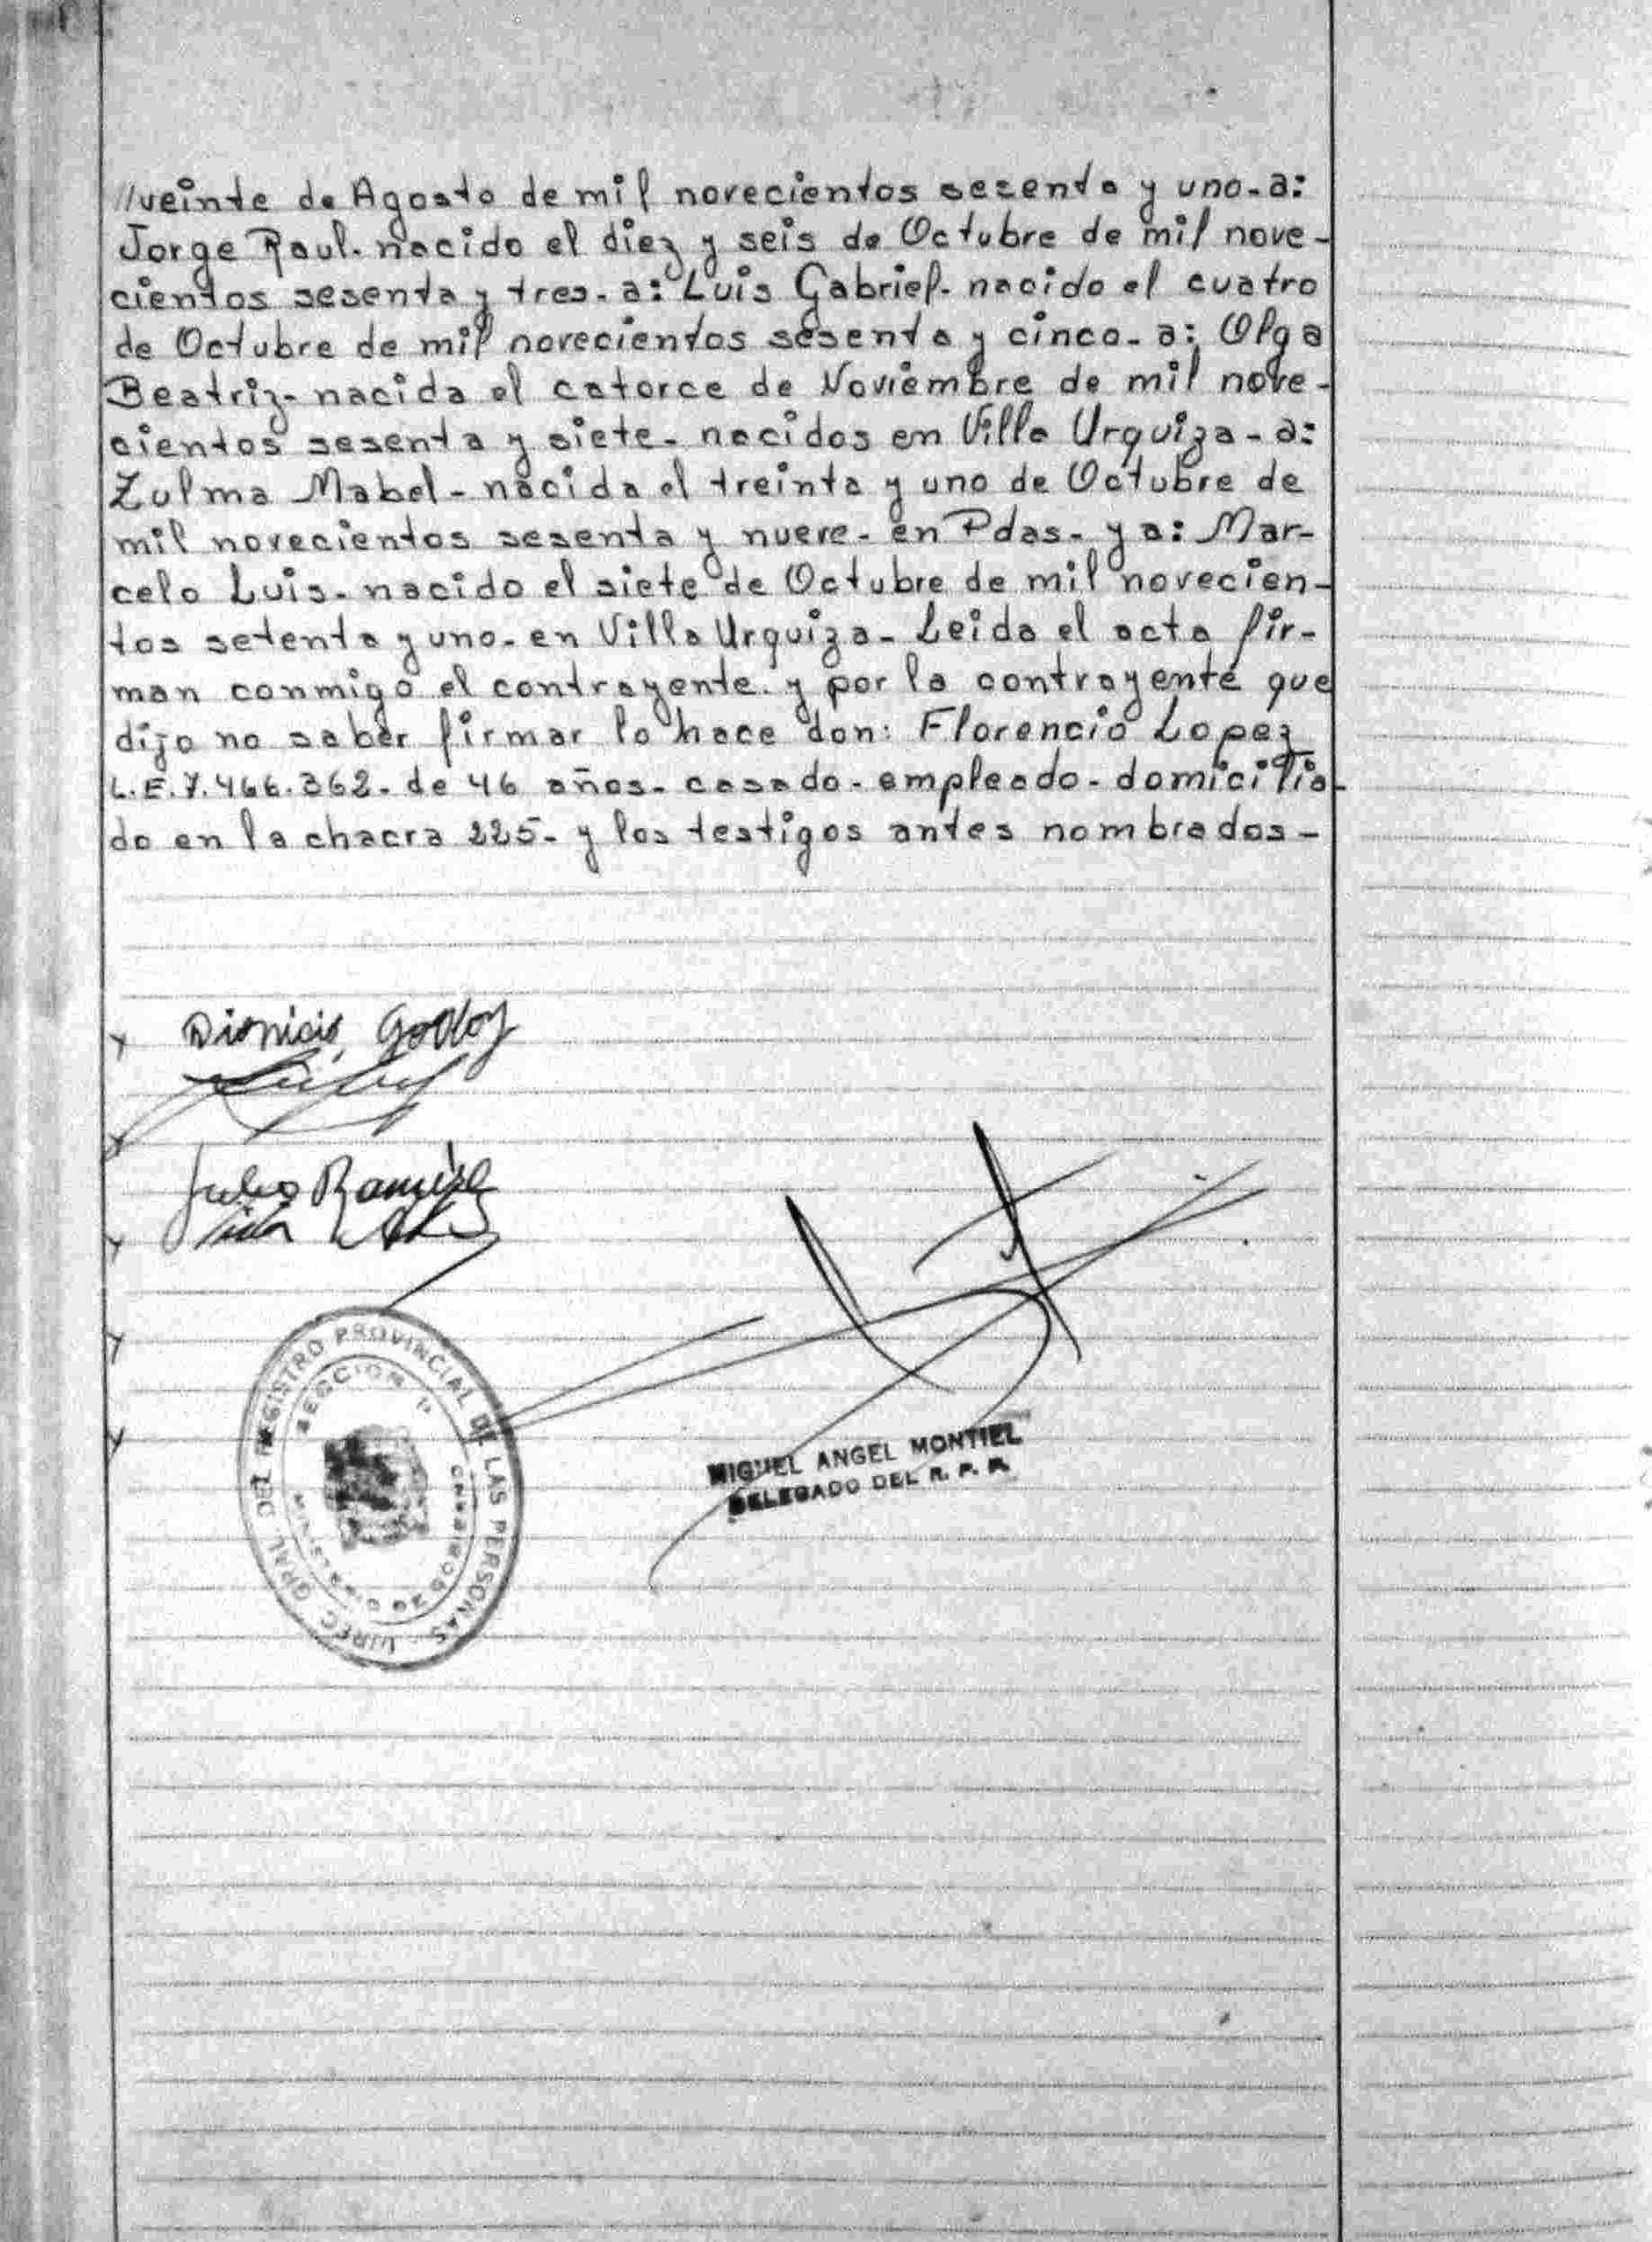 //veinte de Agosto de mil novecientos sesenta y uno- a:
Jorge Raul- nacido el diez y seis de Octubre de mil nove-
cientos sesenta y tres- a: Luis Gabriel- nacido el cuatro
de Octubre de mil novecientos sesenta y cinco- a: Olga
Beatriz- nacida el catorce de Noviembre de mil nove-
cientos sesenta y siete- nacidos en Villa Urquiza- a:
Zulma Mabel- nacida el treinta y uno de Octubre de
mil novecientos sesenta y nueve- en Pdas- y a: Mar-
celo Luis- nacido el siete de Octubre de mil novecien-
tos setenta y uno- en Villa Urquiza- Leida el acta fir-
man conmigo el contrayente y por la contrayente que
dijo no saber firmar lo hace don: Florencio Lopez
L.E. 7.466.362- de 46 años- casado- empleado- domicilia-
do en la chacra 225- y los testigos antes nombrados-
Dionicio Godoy
Julio Ramirez
DIREC. GRAL. DEL REGISTRO PROVINCIAL DE LAS PERSONAS
SECCION 1ª
MIGUEL ANGEL MONTIEL
DELEGADO DEL R. P. P.